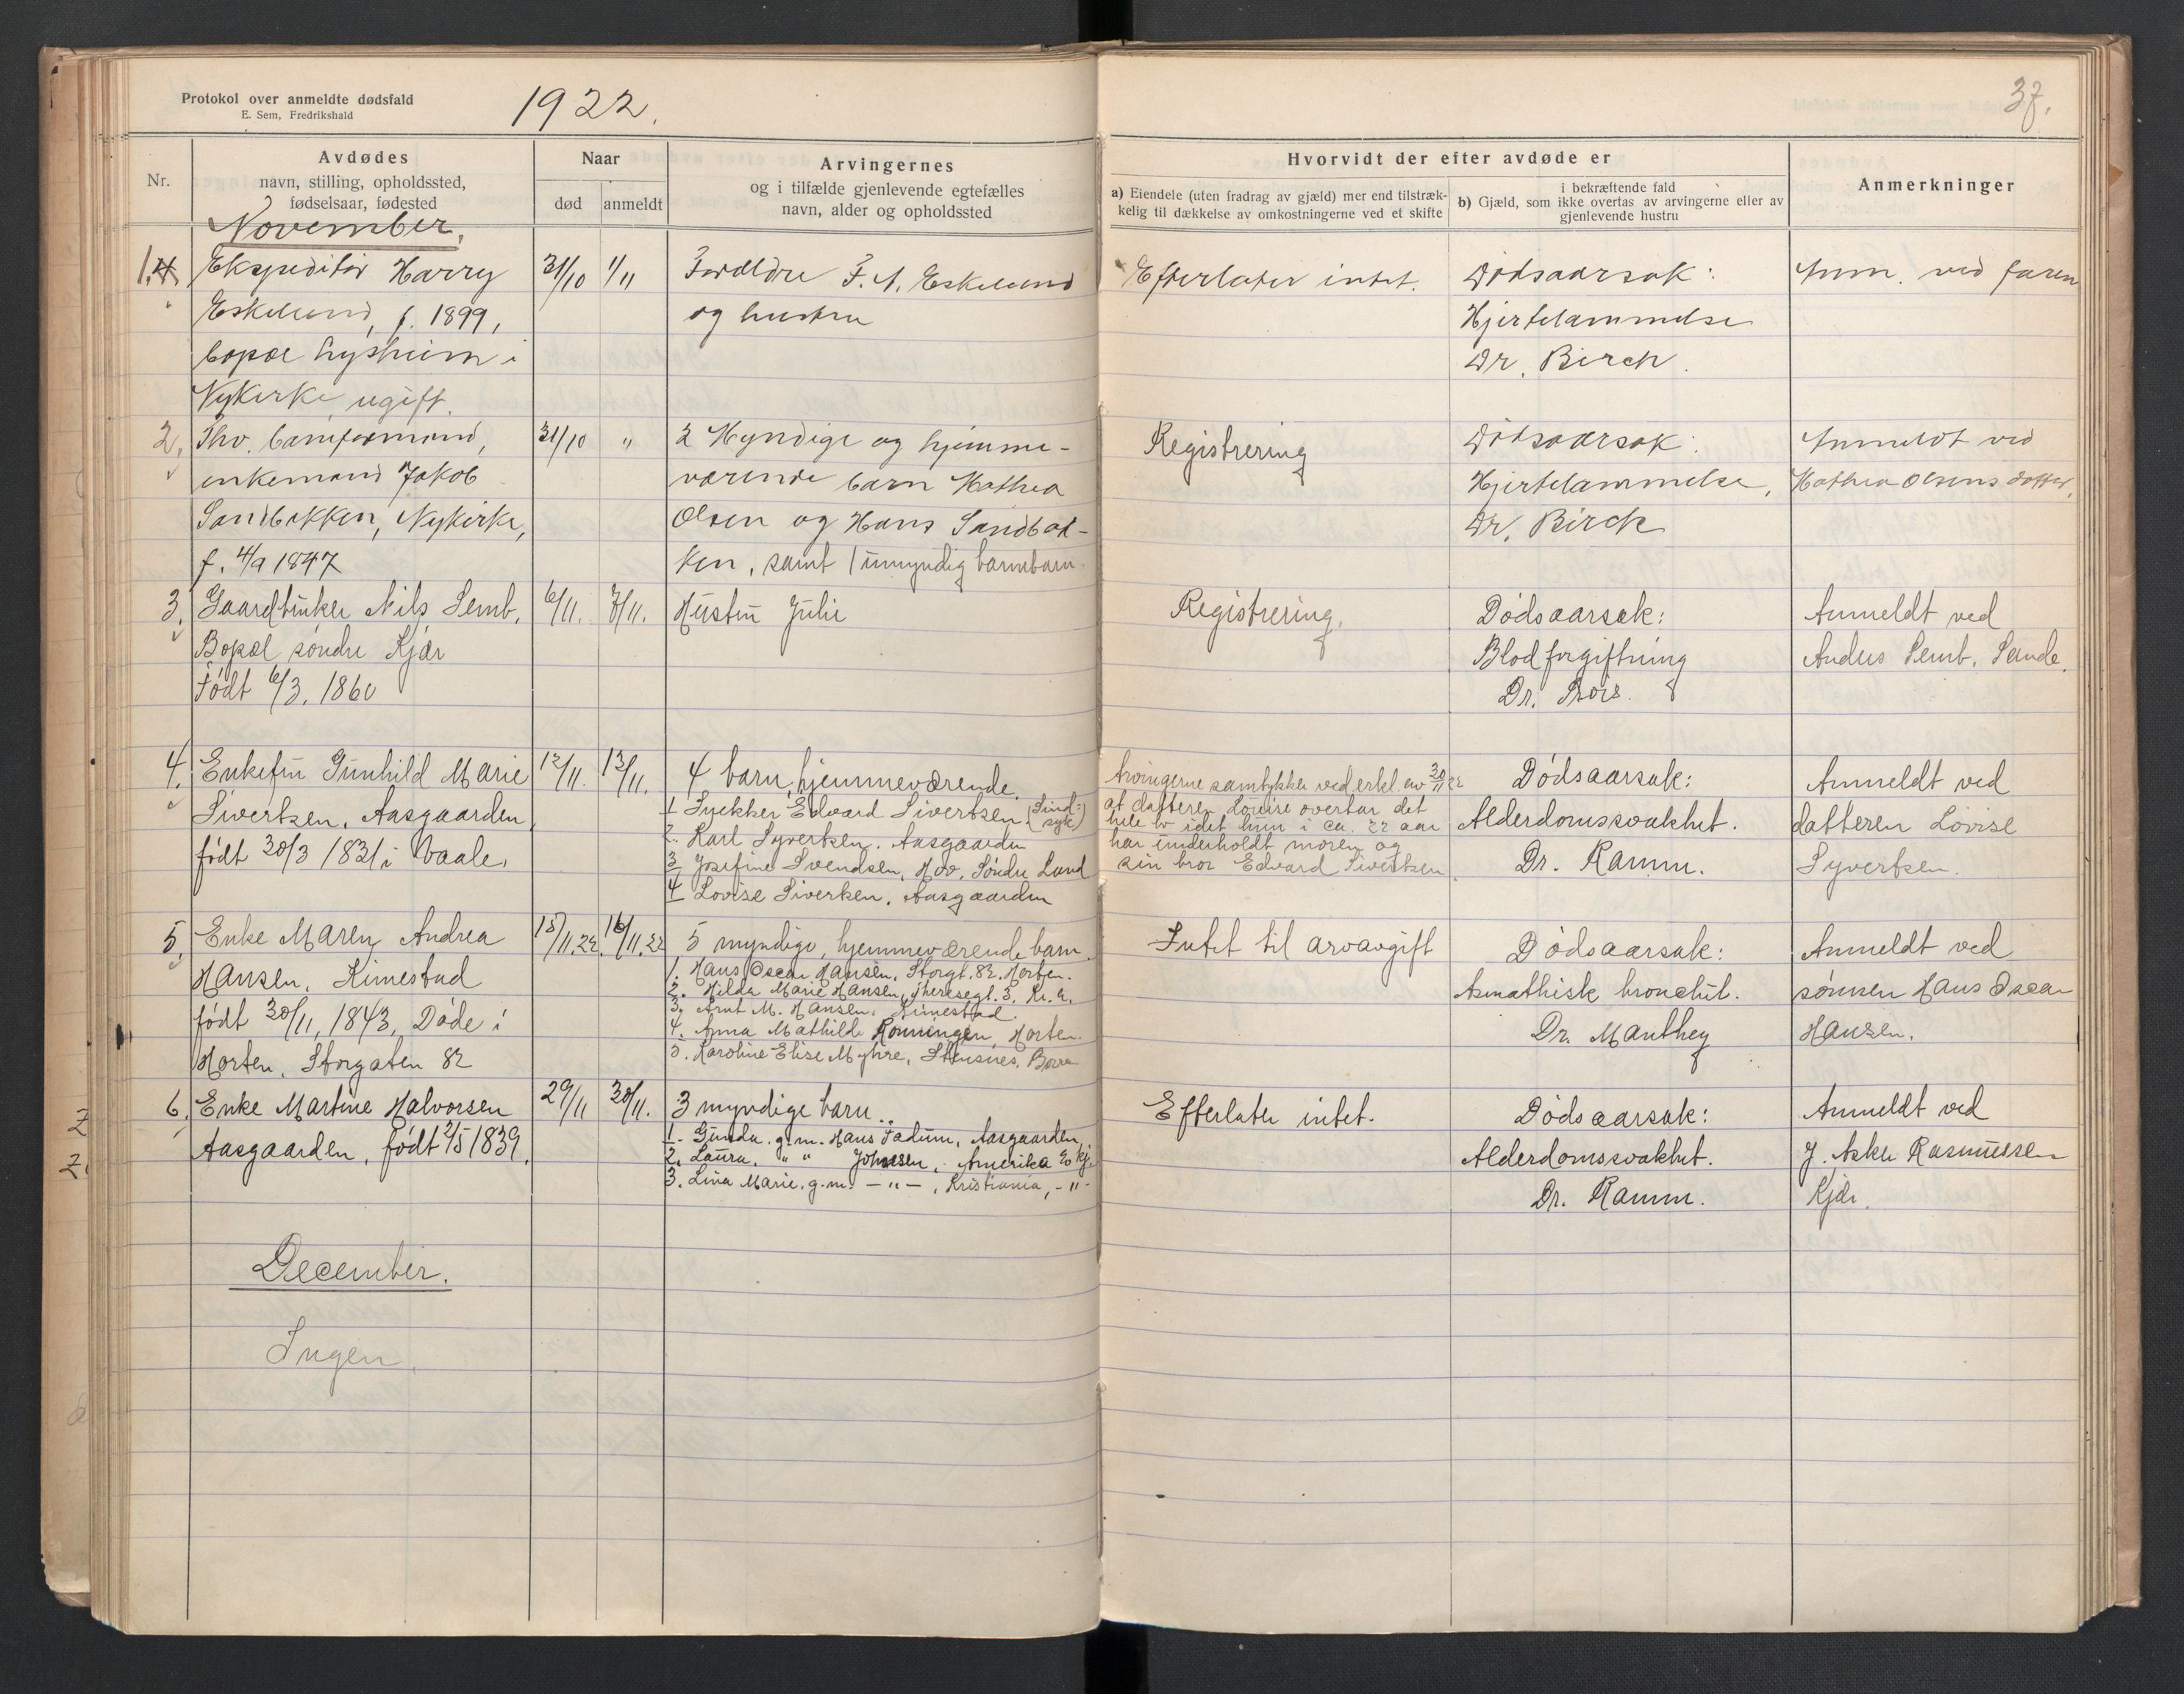 Protokol over anmeldte dødsfald
E. Sem, Fredrikshald
1922.
37.
Nr.
Avdødes
navn, stilling, opholdssted,
fødselsaar, fødested
Naar
død
anmeldt
Arvingernes
og i tilfælde gjenlevende egtefælles
navn, alder og opholdssted
Hvorvidt der efter avdøde er
a) Eiendele (uten fradrag av gjæld) mer end tilstræk-
kelig til dækkelse av omkostningerne ved et skifte
i bekræftende fald
b) Gjæld, som ikke overtas av arvingerne eller av
gjenlevende hustru
Anmerkninger
November.
1.
Ekspeditør Harry
Eskelund, f. 1899,
bopæl Lysheim i
Nykirke, ugift.
31/10
1/11
Forældre F. A. Eskelund
og hustru
Efterlater intet.
Dødsaarsak:
Hjertelammelse
Dr. Birch.
Anm. ved faren
2.
Thv.
enkemand Jakob
Sandbakken, Nykirke,
f. 4/9 1847
31/10
"
2 Myndige og hjemme-
værende barn Mathea
Olsen og Hans Sandbak-
ken, samt 1 umyndig barnebarn.
Registrering
Dødsaarsak:
Hjertelammelse,
Dr. Birch
Anmeldt ved
Mathea Olsens datter,
3.
Gaardbruker Nils Semb,
Bopæl søndre Kjær
Født 6/3. 1860
6/11.
7/11.
Hustru Julie
Registrering.
Dødsaarsak:
Blodforgiftning
Dr.
Anmeldt ved
Anders Semb, Sande.
4.
Enkefru Gunhild Marie
Sivertsen, Aasgaarden,
født 30/3 1831 i Vaale.
12/11.
13/11.
4 barn, hjemmeværende.
1 Snekker Edvard Sivertsen. (Sind-
syk)
2. Karl Syvertsen. Aasgaarden
3 Josefine Svendsen, Hov, Søndre Land
4 Lovise Siverken, Aasgaarden
Arvingerne samtykker ved erkl. av 30/11 22
at datteren Lovise overtar det
hele bo idet hun i ca. 22 aar
har underholdt moren og
sin bror Edvard Sivertsen.
Dødsaarsak:
Alderdomssvakhet.
Dr. Ramm.
Anmeldt ved
datteren Lovise
Syvertsen.
5.
Enke Maren Andrea
Hansen, Kimestad
født 30/11, 1843, Døde i
Horten, Storgaten 82
15/11.22.
16/11.22
5 myndige, hjemmeværende barn.
1. Hans Oscar Hansen, Storgt. 82. Horten.
2. Hilda Marie Hansen, Theresegt. 3. Kr.a.
3. Arnt M. Hansen, Kimestad.
4. Anna Mathilde Rønningen, Horten.
5. Karoline Elise Myhre, Stensnes, Borre
Intet til arvavgift
Dødsaarsak:
Asmathisk bronchit.
Dr. Manthey
Anmeldt ved
sønnen Hans Oscar
Hansen.
6.
Enke Martine Halvorsen
Aasgaarden, født 21/5 1839.
29/11
30/11.
3 myndige barn.
1. Gunda. g.m. Hans Fadum, Aasgaarden,
2. Laura, " " Johnsen, Amerika
3. Lina Marie. g.m. – " – , Kristiania, – " –
Efterlater intet.
Dødsaarsak:
Alderdomssvakhet.
Dr. Ramm.
Anmeldt ved
J. Asker Rasmussen
Kjær.
December.
Ingen.